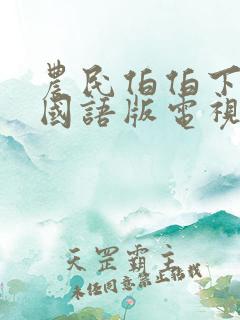 農民伯伯下
國語版電視
天罡霸主
未經同意禁止搭載